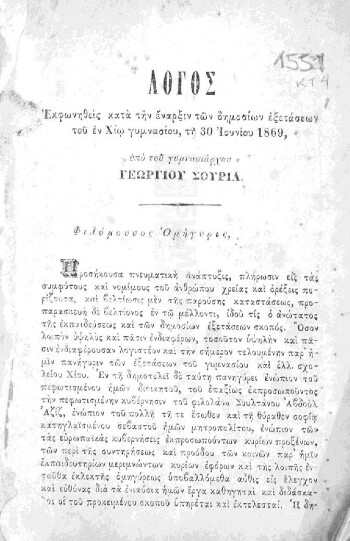 1559
ΛΟΓΟΣ
Ἐκφωνηθεὶς κατὰ τὴν ἔναρξιν τῶν δημοσίων ἐξετάσεων
τοῦ ἐν Χίῳ γυμνασίου, τῇ 30 Ἰουνίου 1869,
ὑπὸ τοῦ γυμνασιάρχου
ΓΕΩΡΓΙΟΥ ΣΟΥΡΙΑ.
Φιλόμουσος Ὁμήγυρις,
Προσήκουσα πνευματικὴ ἀνάπτυξις, πλήρωσιν εἰς τὰς
συμφύτους καὶ νομίμους τοῦ ἀνθρώπου χρείας καὶ ὀρέξεις πο-
ρίζουσα, καὶ βελτίωσις μὲν τῆς παρούσης καταστάσεως, προ-
παρασκευὴ δὲ βελτίονος ἐν τῷ μέλλοντι, ἰδοὺ τίς ὁ ἀνώτατος
τῆς ἐκπαιδεύσεως καὶ τῶν δημοσίων ἐξετάσεων σκοπός. Ὅσον
λοιπὸν ὑψηλὸς καὶ πᾶσιν ἐνδιαφέρων, τοσοῦτον ὑψηλὴν καὶ πᾶ-
σιν ἐνδιαφέρουσαν λογιστέον καὶ τὴν σήμερον τελουμένην παρ' ἡ-
μῖν πανήγυριν τῶν ἐξετάσεων τοῦ γυμνασίου καὶ ἑλλ. σχο-
λείου Χίου. Ἐν τῇ δημοτελεῖ δὲ ταύτῃ πανηγύρει ἐνώπιον τοῦ
πεφωτισμένου ἡμῶν διοικητοῦ, τοῦ ἐπαξίως ἐκπροσωποῦντος
τὴν πεφωτισμένην κυβέρνησιν τοῦ φιλολάου Σουλτάνου Ἀβδοὺλ
Ἀζίζ, ἐνώπιον τοῦ πολλῇ τῇ τε ἔσωθεν καὶ τῇ θύραθεν σοφίᾳ
κατηγλαϊσμένου σεβαστοῦ ἡμῶν μητροπολίτου, ἐνώπιον τῶν
τὰς εὐρωπαϊκὰς κυβερνήσεις ἐκπροσωπούντων κυρίων προξένων,
τῶν περὶ τῆς συντηρήσεως καὶ προόδου τῶν κοινῶν παρ' ἡμῖν
ἐκπαιδευτηρίων μεριμνώντων κυρίων ἐφόρων καὶ τῆς λοιπῆς ἐν-
ταῦθα ἐκλεκτῆς ὁμηγύρεως ὑποβαλλόμεθα αὖθις εἰς ἔλεγχον
καὶ εὐθύνας διὰ τὰ ἐνιαύσια ἡμῶν ἔργα καθηγηταὶ καὶ διδάσκα-
λοι οἱ τοῦ προκειμένου σκοποῦ ὑπηρέται καὶ ἐκτελεσταί. Ἡ δη-